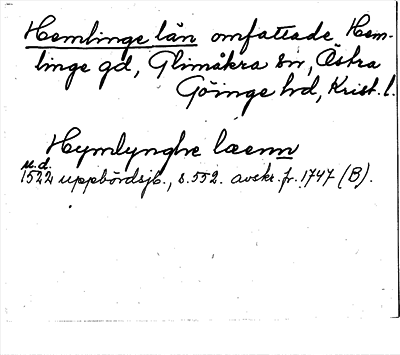 Hemlinge län omfattade Hem-
linge gd, Glimåkra sn, Östra
Göinge hd, Krist. l.
Hymlynghe læenn
u.d.
1522 uppbördsjb., s. 552. avskr. fr. 1747 (B).